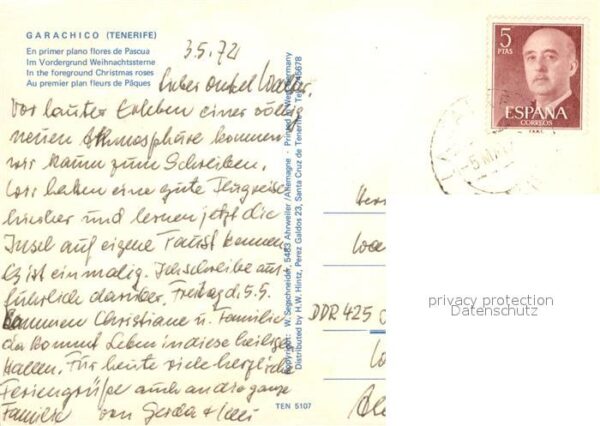 GARACHICO (TENERIFE)
En primer plano flores de Pascua
Im Vordergrund Weihnachtssterne
In the foreground Christmas roses
Au premier plan fleurs de Pâques
3.5.72
Lieber Onkel Walter,
Vor lauter Erleben einer völlig
neuen Athmosphäre kommen
wir kaum zum Schreiben.
Wir haben eine gute Flugreise
hierher und lernen jetzt die
Insel auf eigene Faust kennen
Es ist einmalig. Ich schreibe aus-
führlich darüber. Freitag d. 5.5.
kommen Christiane u. Familie
da kommt Leben in diese heiligen
Hallen. Für heute viele herzliche
Feriengrüße auch an die ganze
Familie von Gerda +
Copyright: W. Segschneider, 5483 Ahrweiler/Allemagne - Printed in W.-Germany
Distributed by H.W. Hintz, Perez Galdos 23, Santa Cruz de Tenerife
TEN 5107
5
PTAS
ESPAÑA
CORREOS
DDR 425
privacy protection
Datenschutz